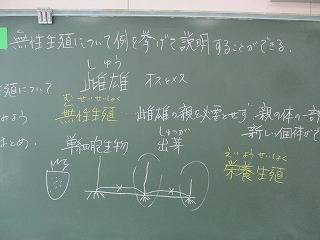 無性生殖について例を挙げて説明することができる.
しゆう
雌雄 オスとメス
殖について
むせいせいしょく
無性生殖… 雌雄の親を必要とせず 親の体の一部
みよう
新しい個体が
まとめ.
単細胞生物
しゅつが
出芽
えいようせいしょく
栄養生殖